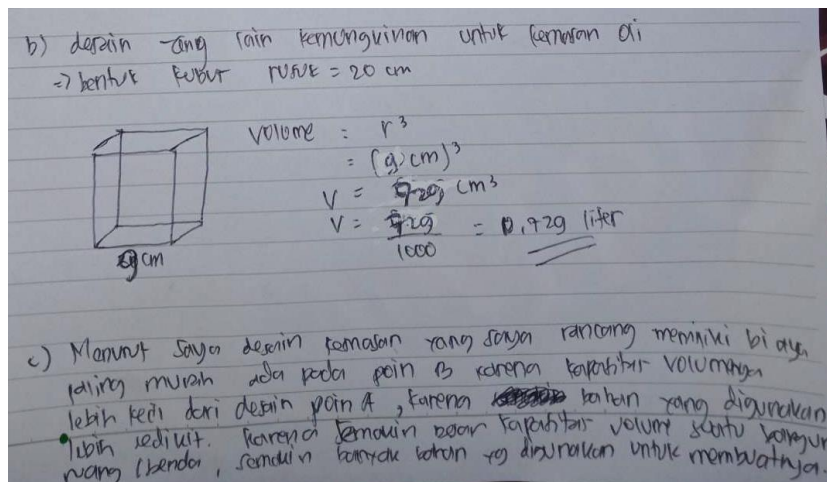 b) desain yang lain kemungkinan untuk kemasan di
=> bentuk kubus rusuk = 20 cm
Volume = r³
= (9 cm)³
V = 729 cm³
V = 729/1000 = 0,729 liter
9 cm
c) Menurut saya desain kemasan yang saya rancang memiliki biaya
paling murah ada pada poin B karena kapasitas volumenya
lebih kecil dari desain poin A, karena bahan yang digunakan
lebih sedikit. karena semakin besar kapasitas volume suatu bangun
ruang (benda, semakin banyak bahan yg digunakan untuk membuatnya.